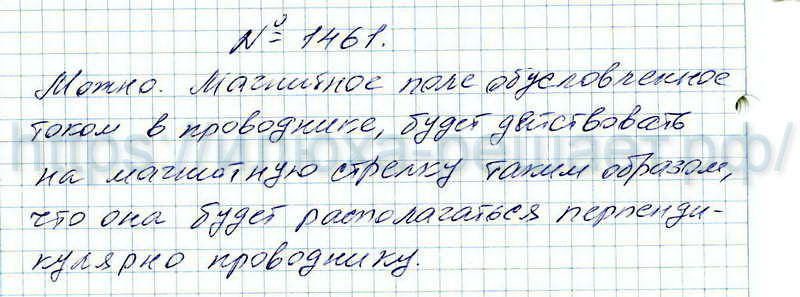 № 1461.
Можно. Магнитное поле обусловленное
током в проводнике, будет действовать
на магнитную стрелку таким образом,
что она будет располагаться перпенди-
кулярно проводнику.